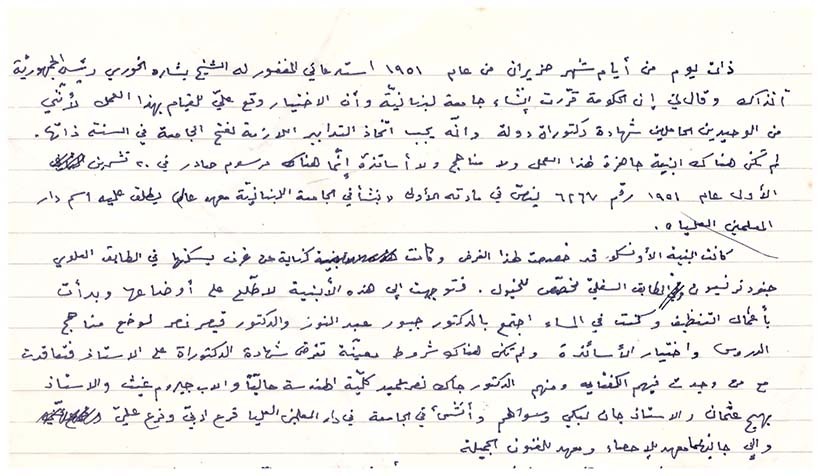 ذات يوم من أيام شهر حزيران من عام ١٩٥١ استدعاني المغفور له الشيخ بشاره الخوري رئيس الجمهوريّة
آنذاك وقال لي إن الحكومة قرّرت إنشاء جامعة لبنانيّة وأن الاختيار وقع عليّ للقيام بهذا العمل لأنّني
من الوحيدين الحاملين شهادة دكتوراة دولة وانّه يجب اتّخاذ التدابير اللازمة لفتح الجامعة في السنة ذاتها.
لم تكن هناك ابنية جاهزة لهذا العمل ولا مناهج ولا أساتذة إنّما هناك مرسوم صادر في ٢٠ تشرين
الأول عام ١٩٥١ رقم ٦٢٦٧ ينصّ في مادته الأولى "ينشأ في الجامعة اللبنانيّة معهد عالٍ يطلق عليه اسم دار
المعلمين العليا".
كانت ابنية الأونسكو قد خصصت لهذا الغرض وكانت كناية عن غرف يسكنها في الطابق العلوي
جنود فرنسيون وفي الطابق السفليّ مخصّص للخيول. فتوجهت إلى هذه الأبنية لاطّلع على أوضاعها وبدأت
بأعمال التنظيف وكنت في المساء اجتمع بالدكتور جبور عبد النور والدكتور قيصر نصر لوضع مناهج
الدروس واختيار الأساتذة ولم تكن هناك شروط معيّنة تفرض شهادة الدكتوراة على الاستاذ فتعاقدت
مع من وجدت فيهم الكفاية ومنهم الدكتور جاك نصر عميد كليّة الهندسة حاليّاً والاب جيروم غيث والاستاذ
بهيج عثمان والاستاذ جان لبكي وسواهم وأنشئ في الجامعة في دار المعلمين العليا فرع ادبيّ وفرع علميّ
والى جانبهما معهد للإحصاء ومعهد للفنون الجميلة